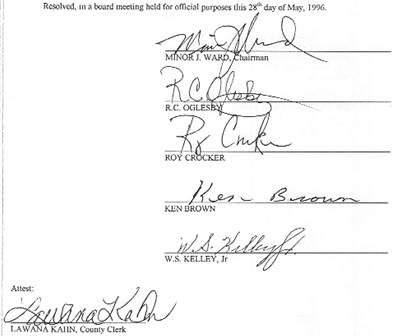 Resolved, in a board meeting held for official purposes this 28th day of May, 1996.
Minor J Ward
MINOR J. WARD, Chairman
R.C. Oglesby
R.C. OGLESBY
Roy Crocker
ROY CROCKER
Ken Brown
KEN BROWN
W.S. Kelley Jr
W.S. KELLEY, Jr
Attest:
Lawana Kahn
LAWANA KAHN, County Clerk